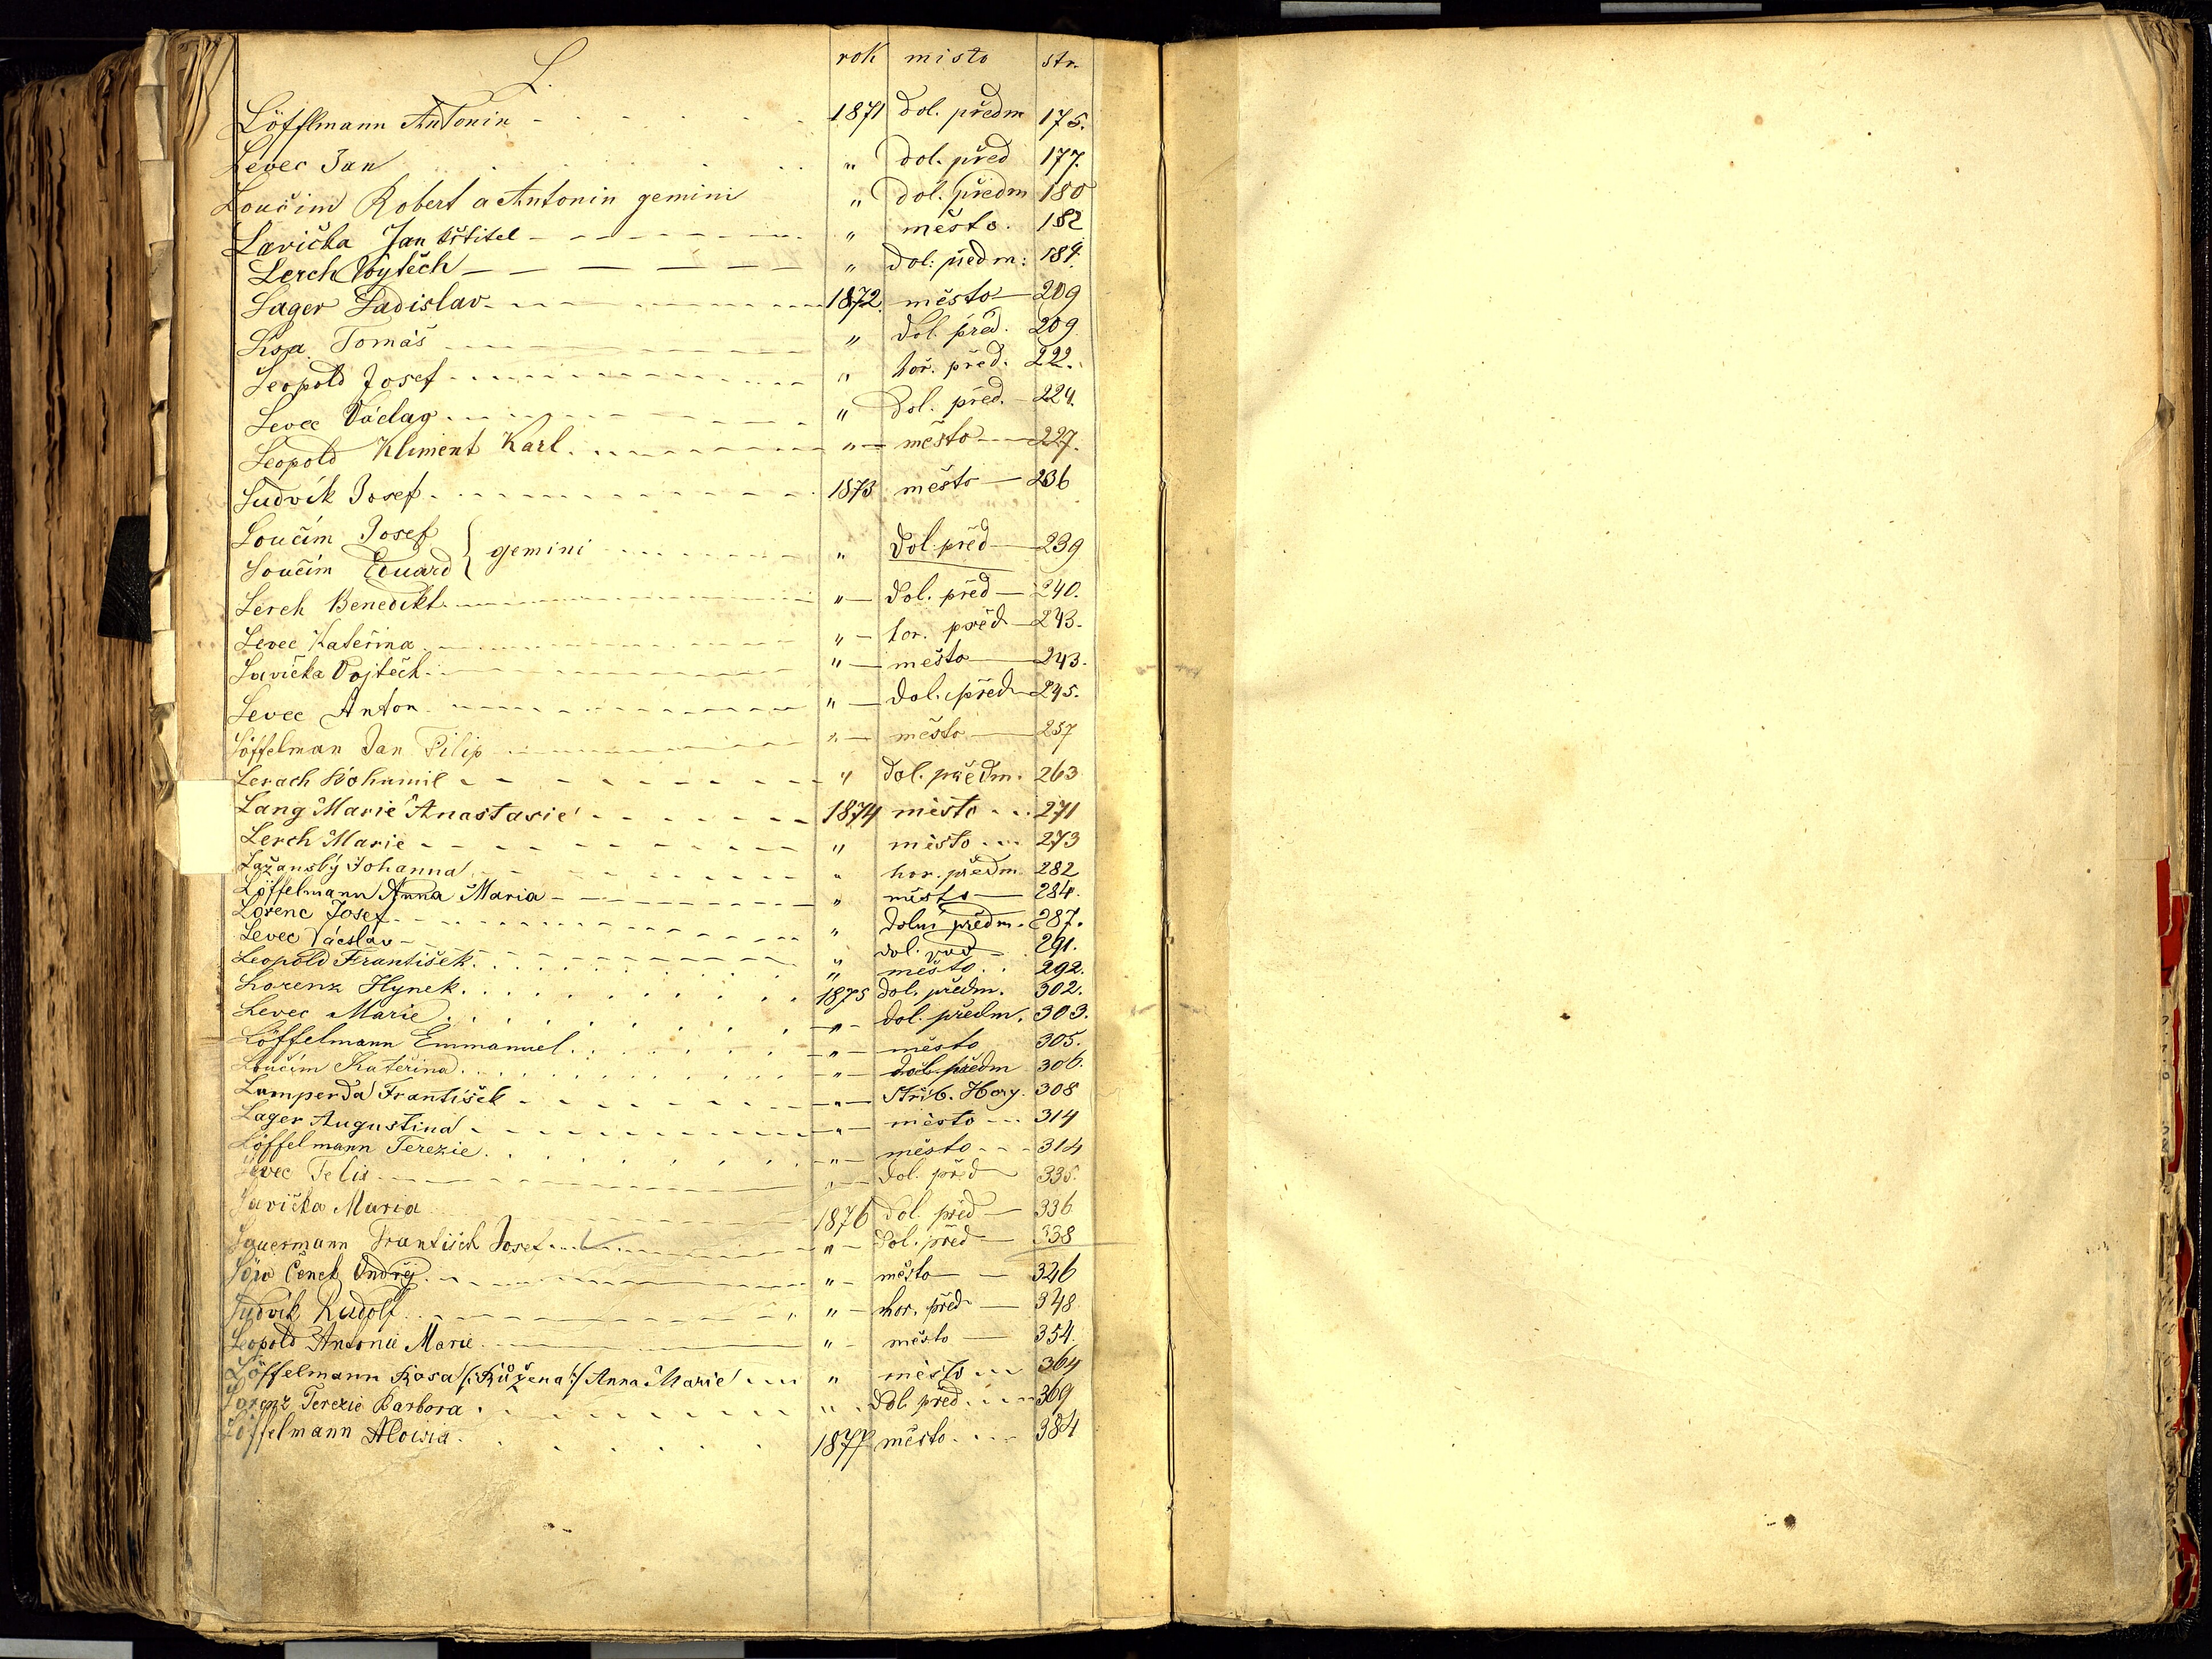 L. rok misto str.
Löfflmann Antonin 1871 dol. předm 175.
Levec Jan " dol. před 177.
Loučim Robert a Antonin gemini " dol. předm 180
Lavička Jan křtitel " město. 182
Lerch Vojtěch " dol. předm: 184.
Lager Ladislav 1872. město 209
Tomáš " dol. před. 209
Leopold Josef " hoř. před. 222.
Levec Václav " dol. před. 224.
Leopold Kliment Karl " město 227.
Ludvík Josef 1873 město 236
Loučím Josef
gemini " dol. před 239
Loučím Eduard
Lerch Benedikt " dol. před 240.
Levec Kateřina " hor. před 243.
Lavička Vojtěch " město 243.
Levec Anton " dol. před 245.
Löffelman Jan Filip " město 257
Lerach Bohumil " dol. předm. 263
Lang Marie Anastasie 1874 město 271
Lerch Marie " město 273
Lažanský Johanna " hor. předm. 282
Löffelmann Anna Maria " město 284.
Lorenc Josef " dolní předm. 287.
Levec Vácslav " dol. 291.
Leopold František " město 292.
Lorenz Hynek 1875 dol. předm. 302.
Levec Marie " dol. předm. 303.
Löffelmann Emmanuel " město 305.
Loučím Kateřina " předm 306.
Lamperda František " Střib. Hory. 308
Lager Augustina " město 314
Löffelmann Terezie " město 314
Levec Felix " dol. před 335.
Lavička Maria 1876 dol. před 336
Lauermann František Josef " dol. před 338
Löw Čeněk Ondřej " město 346
Ludvík Rudolf " hor. před 348
Leopold Antonie Marie " město 354.
Löffelmann Rosa /:Růžena:/ Anna Marie " město 364
Lorenz Terezie Barbora " dol. před. 369
Löffelmann Aloisia 1877 město 384